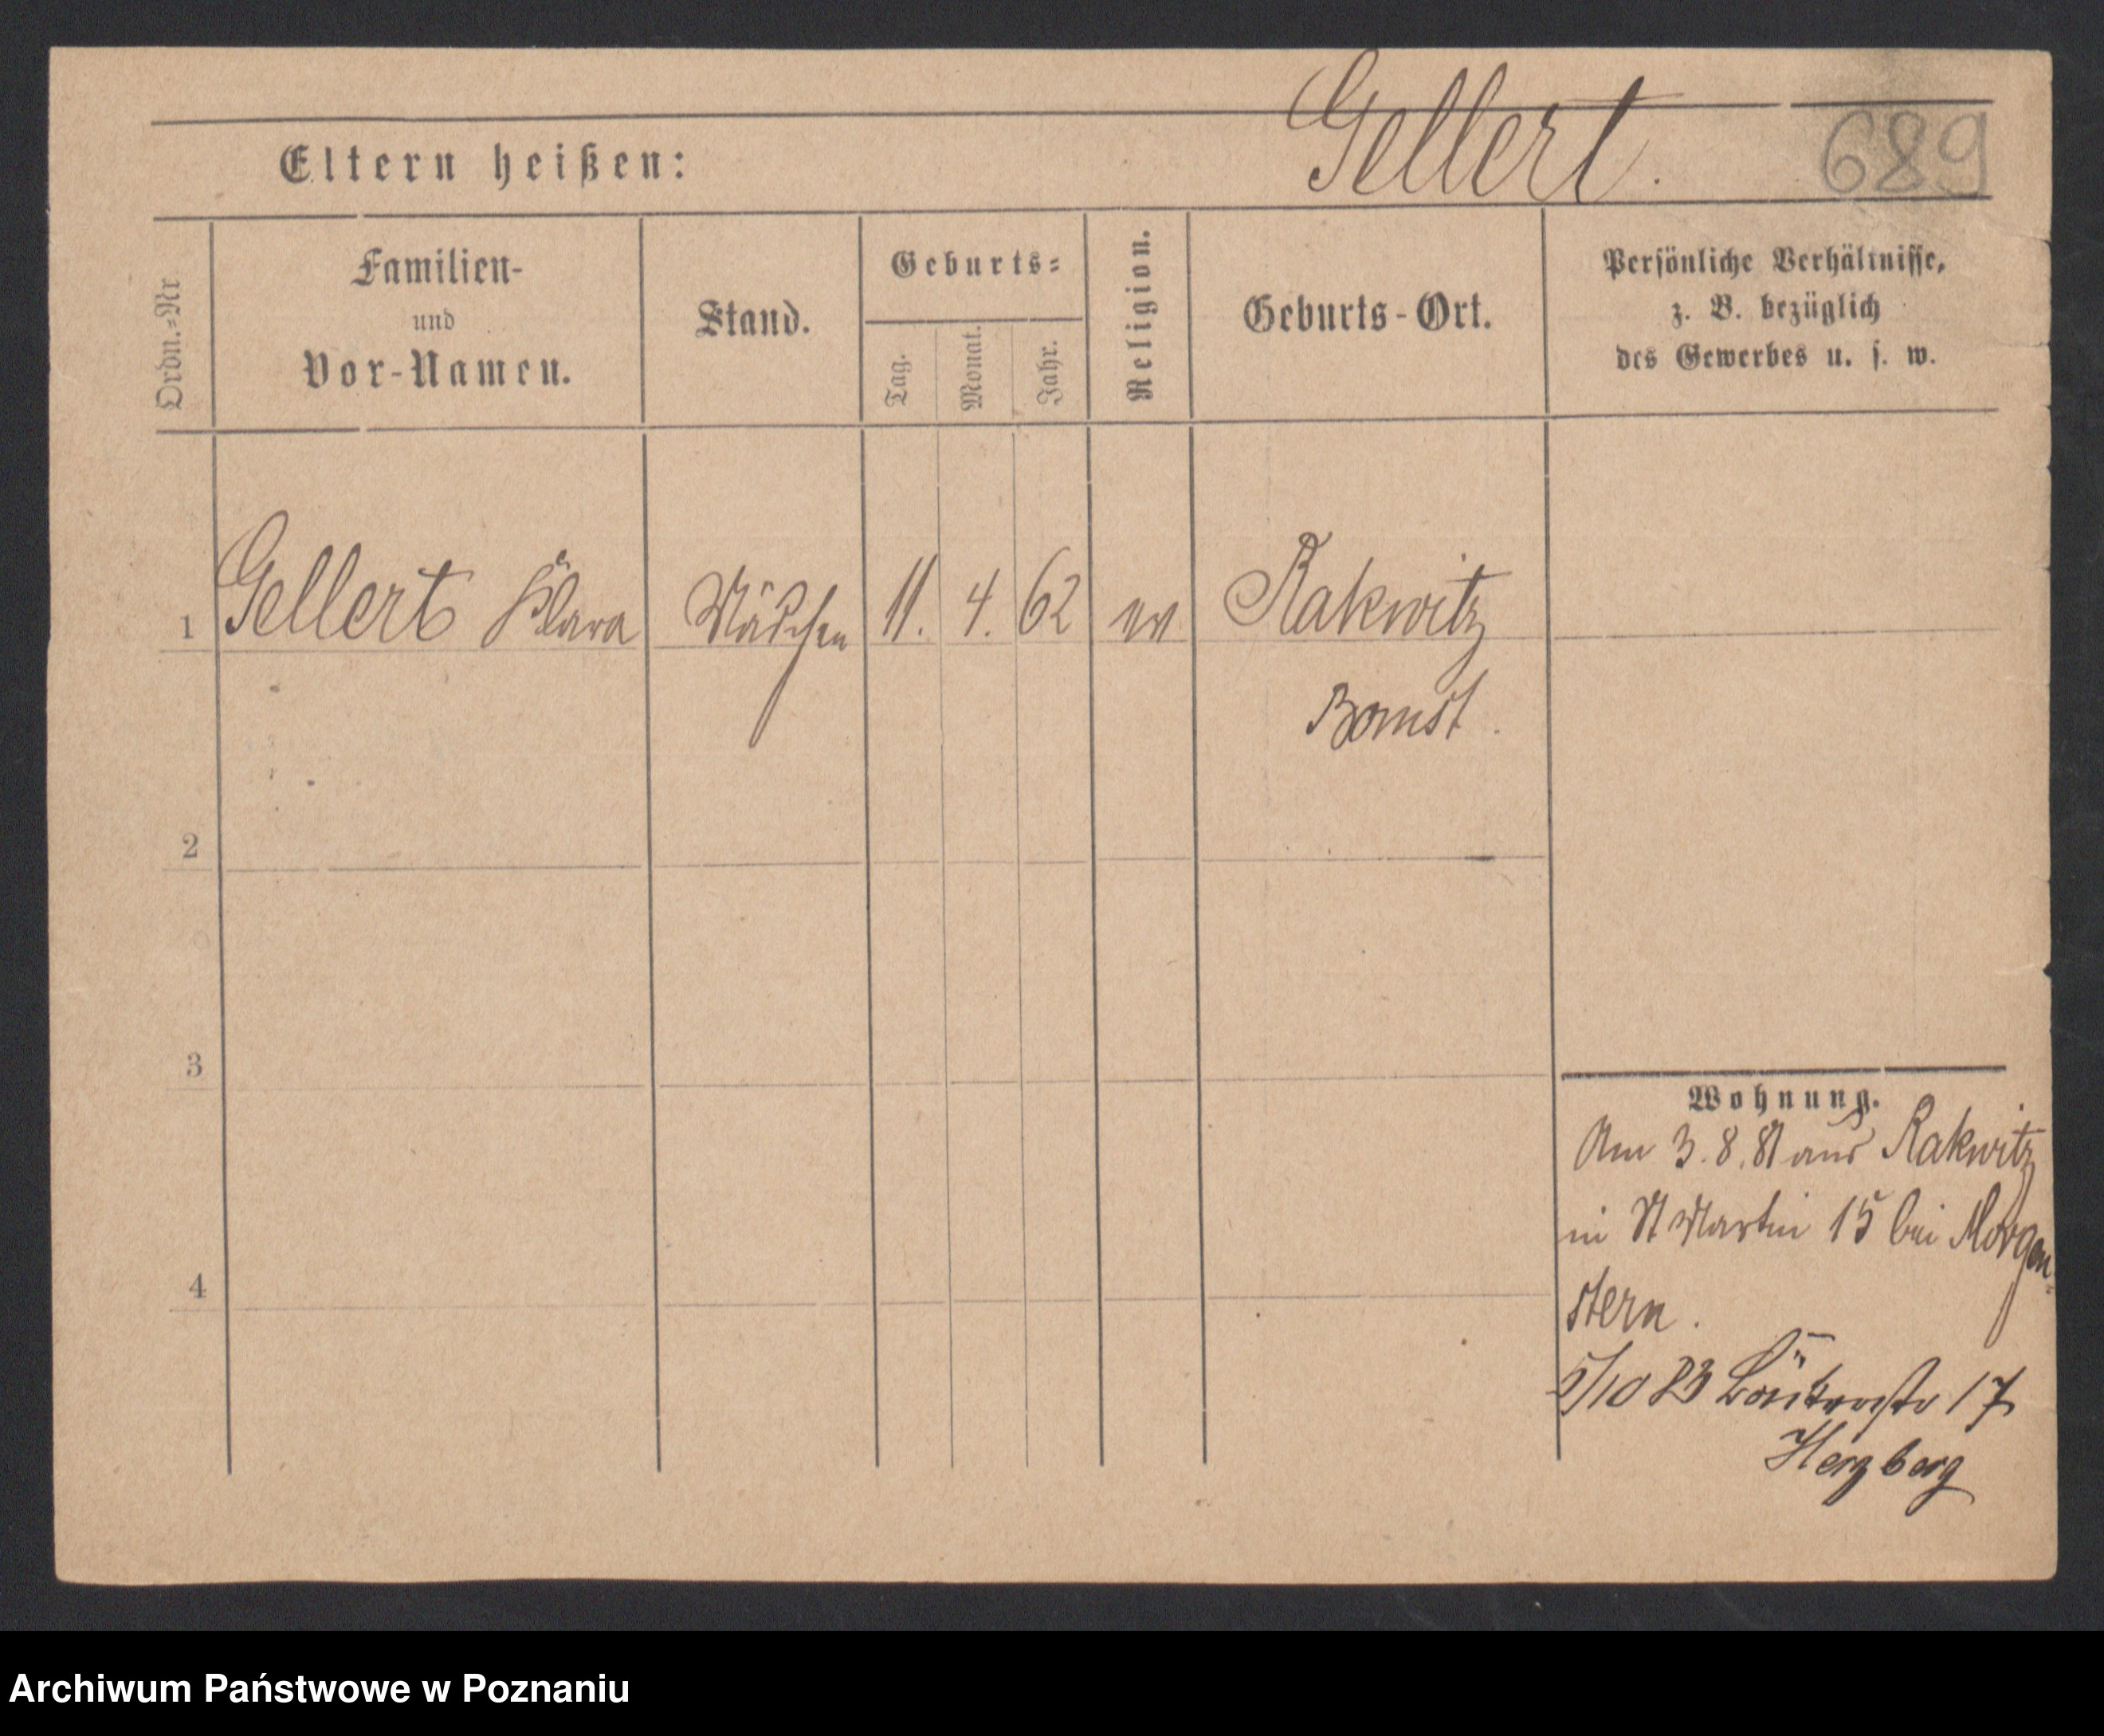 Gellert.
689
Eltern heißen:
Ordn.-Nr
Familien-
und
Vor-Namen.
Stand.
Geburts-
Tag.
Monat.
Jahr.
Religion.
Geburts-Ort.
Persönliche Verhältnisse,
z. B. bezüglich
des Gewerbes u. s. w.
1 Gellert Klara Mädchen 11. 4. 62 ev Rakwitz
Bomst.
2
3
4
Wohnung.
Am 3. 8. 81 aus Rakwitz
in St Martin 15 bei Morgen-
stern.
5/10 83 17
Herzberg
Archiwum Państwowe w Poznaniu